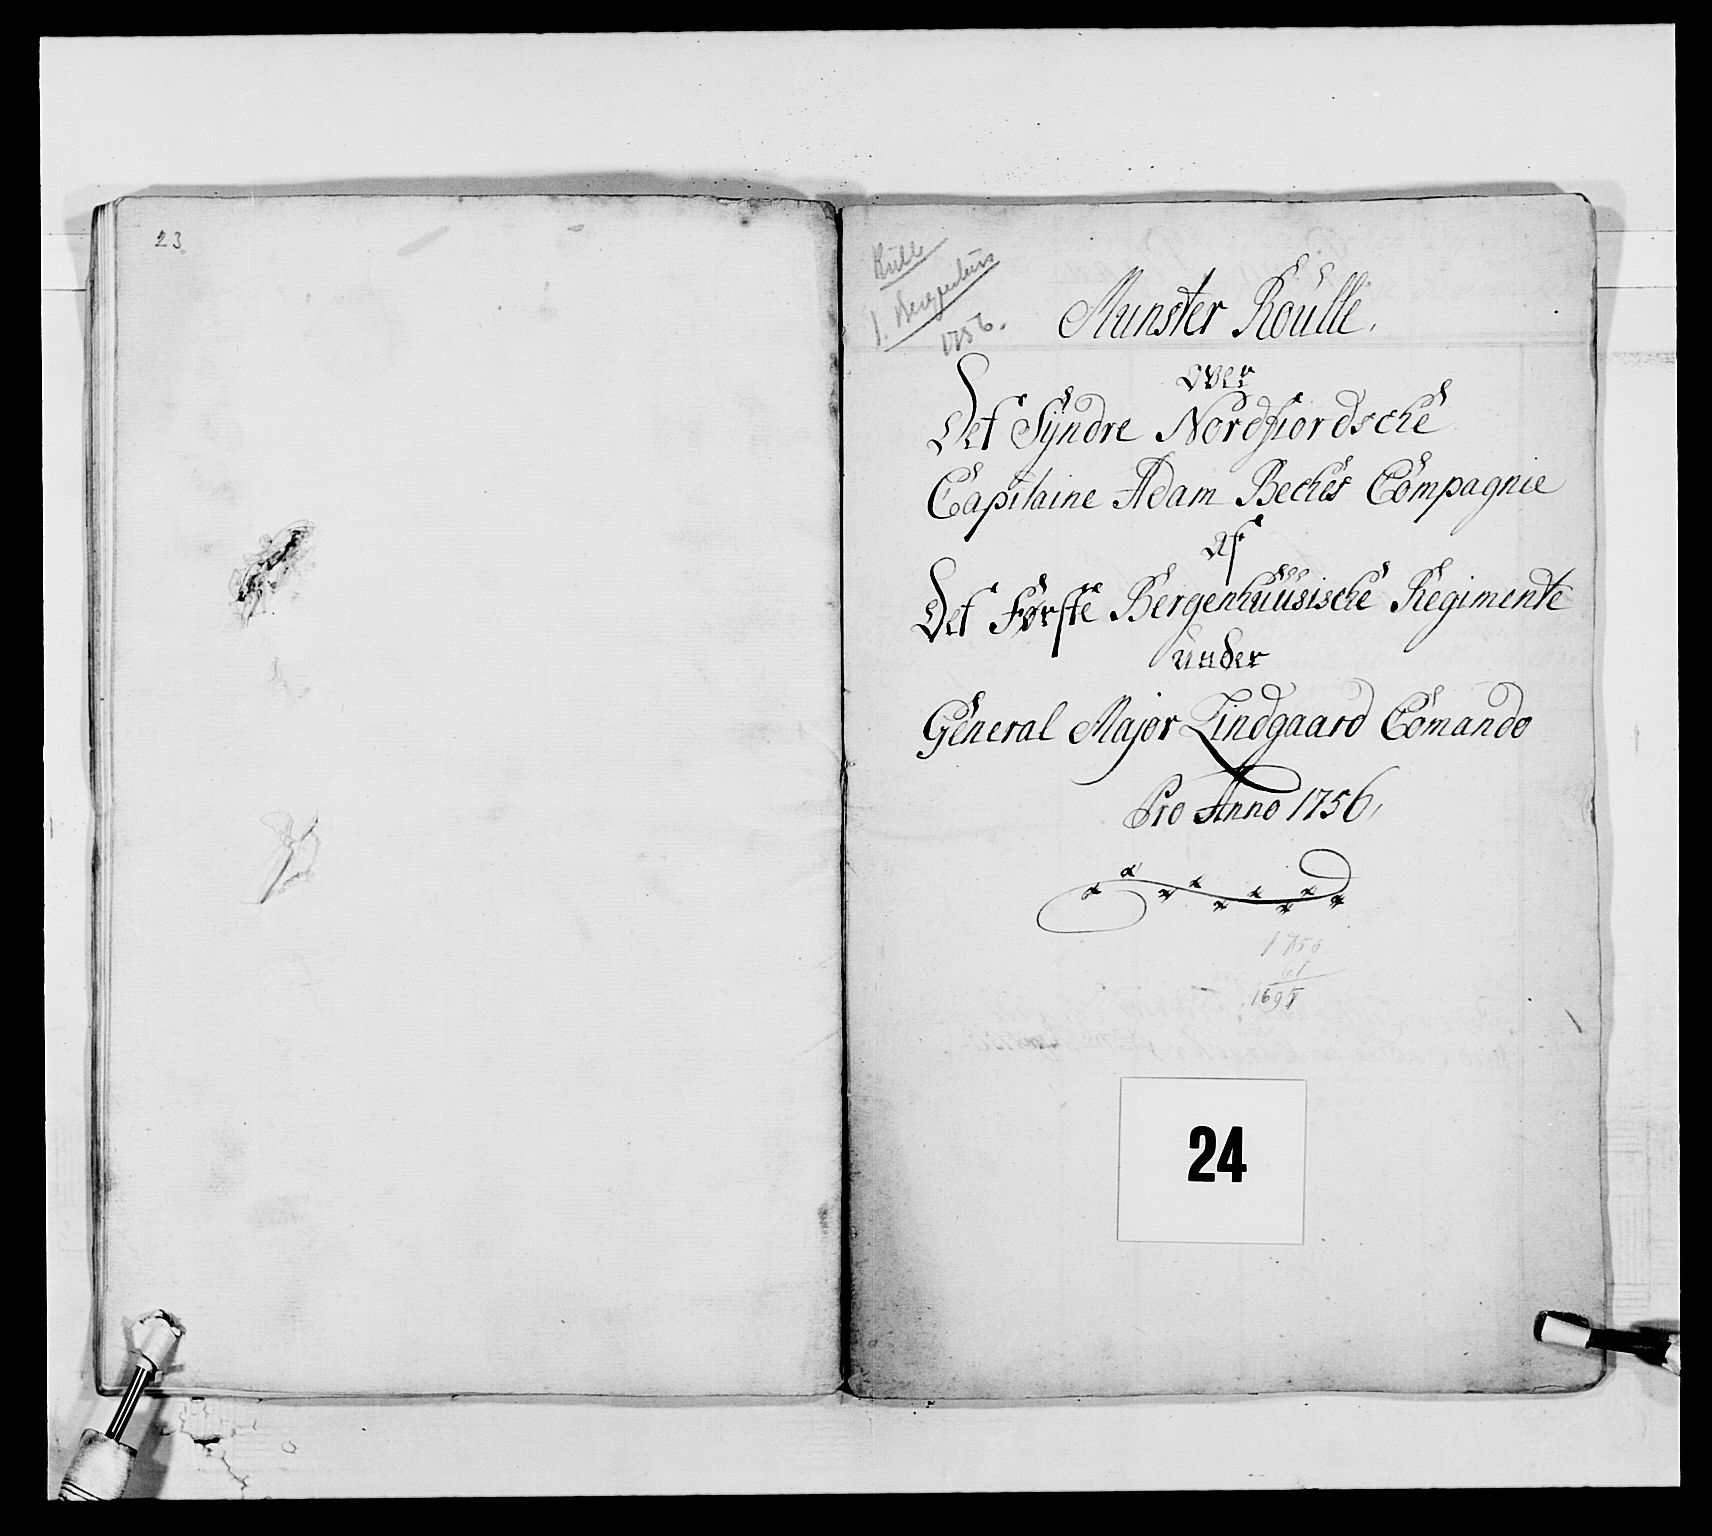 23
Rulle
1. Bergenhus
1756.
Munster Roulle.
over
Det Syndre Nordfiordsche
Capitaine Adam Beches Compagnie
Af
Det Første Bergenhuusische Regimente
under
General Major Lindgaard Comando
Pro Anno 1756,
1756
61
1695
24